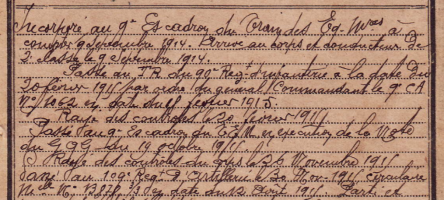 Incorporé au 9e Escadron du Train des Eq. Mres à
compter 9 Septembre 1914. Arrivé au corps et conducteur de
2e classe le 9 Septembre 1914.
Passé au T.R. du 90e Reg. d'infanterie à la date du
20 février 1915 par ordre du général Commandant le 9e C.A.
No 1062 en date du février 1915.
Rayé des contrôles le 20 février 1915
Passé au 9e Escadron du T.E.M. en exécution de la Note
du G.Q.G. du 19 octobre 1915
Rayé des contrôles du corps le 26 Novembre 1915
Passé au 109e Regt d'Artillerie le 30 Nov. 1915 Circulaire
No du 12 Août 1915. Parti et